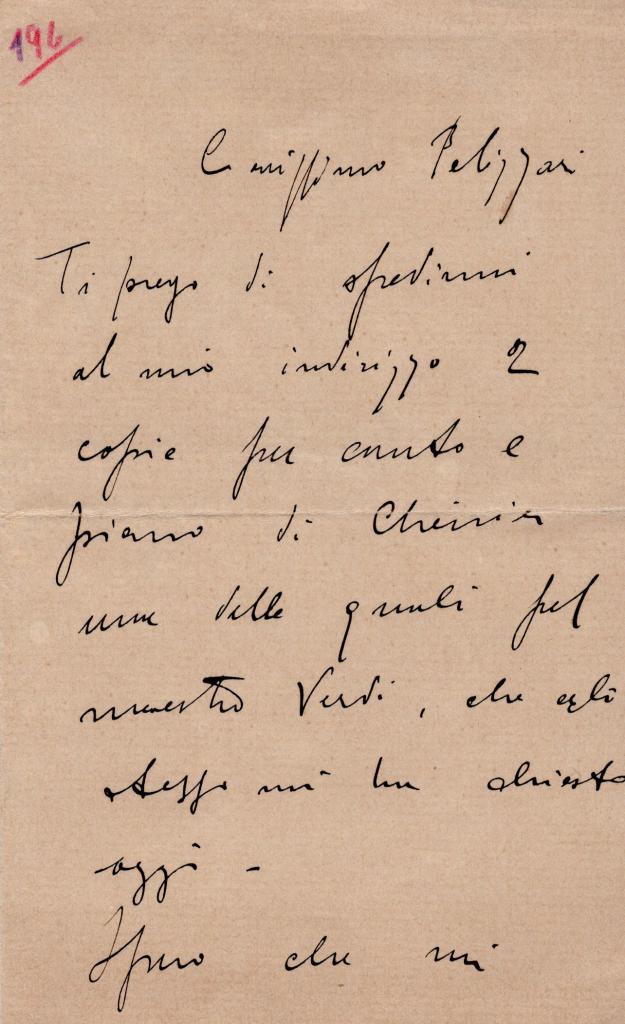 196
Carissimo Pelizzari
Ti prego di spedirmi
al mio indirizzo 2
copie per canto e
piano di Chénier
una delle quali pel
maestro Verdi, che egli
stesso mi ha chiesto
oggi -
Spero che mi